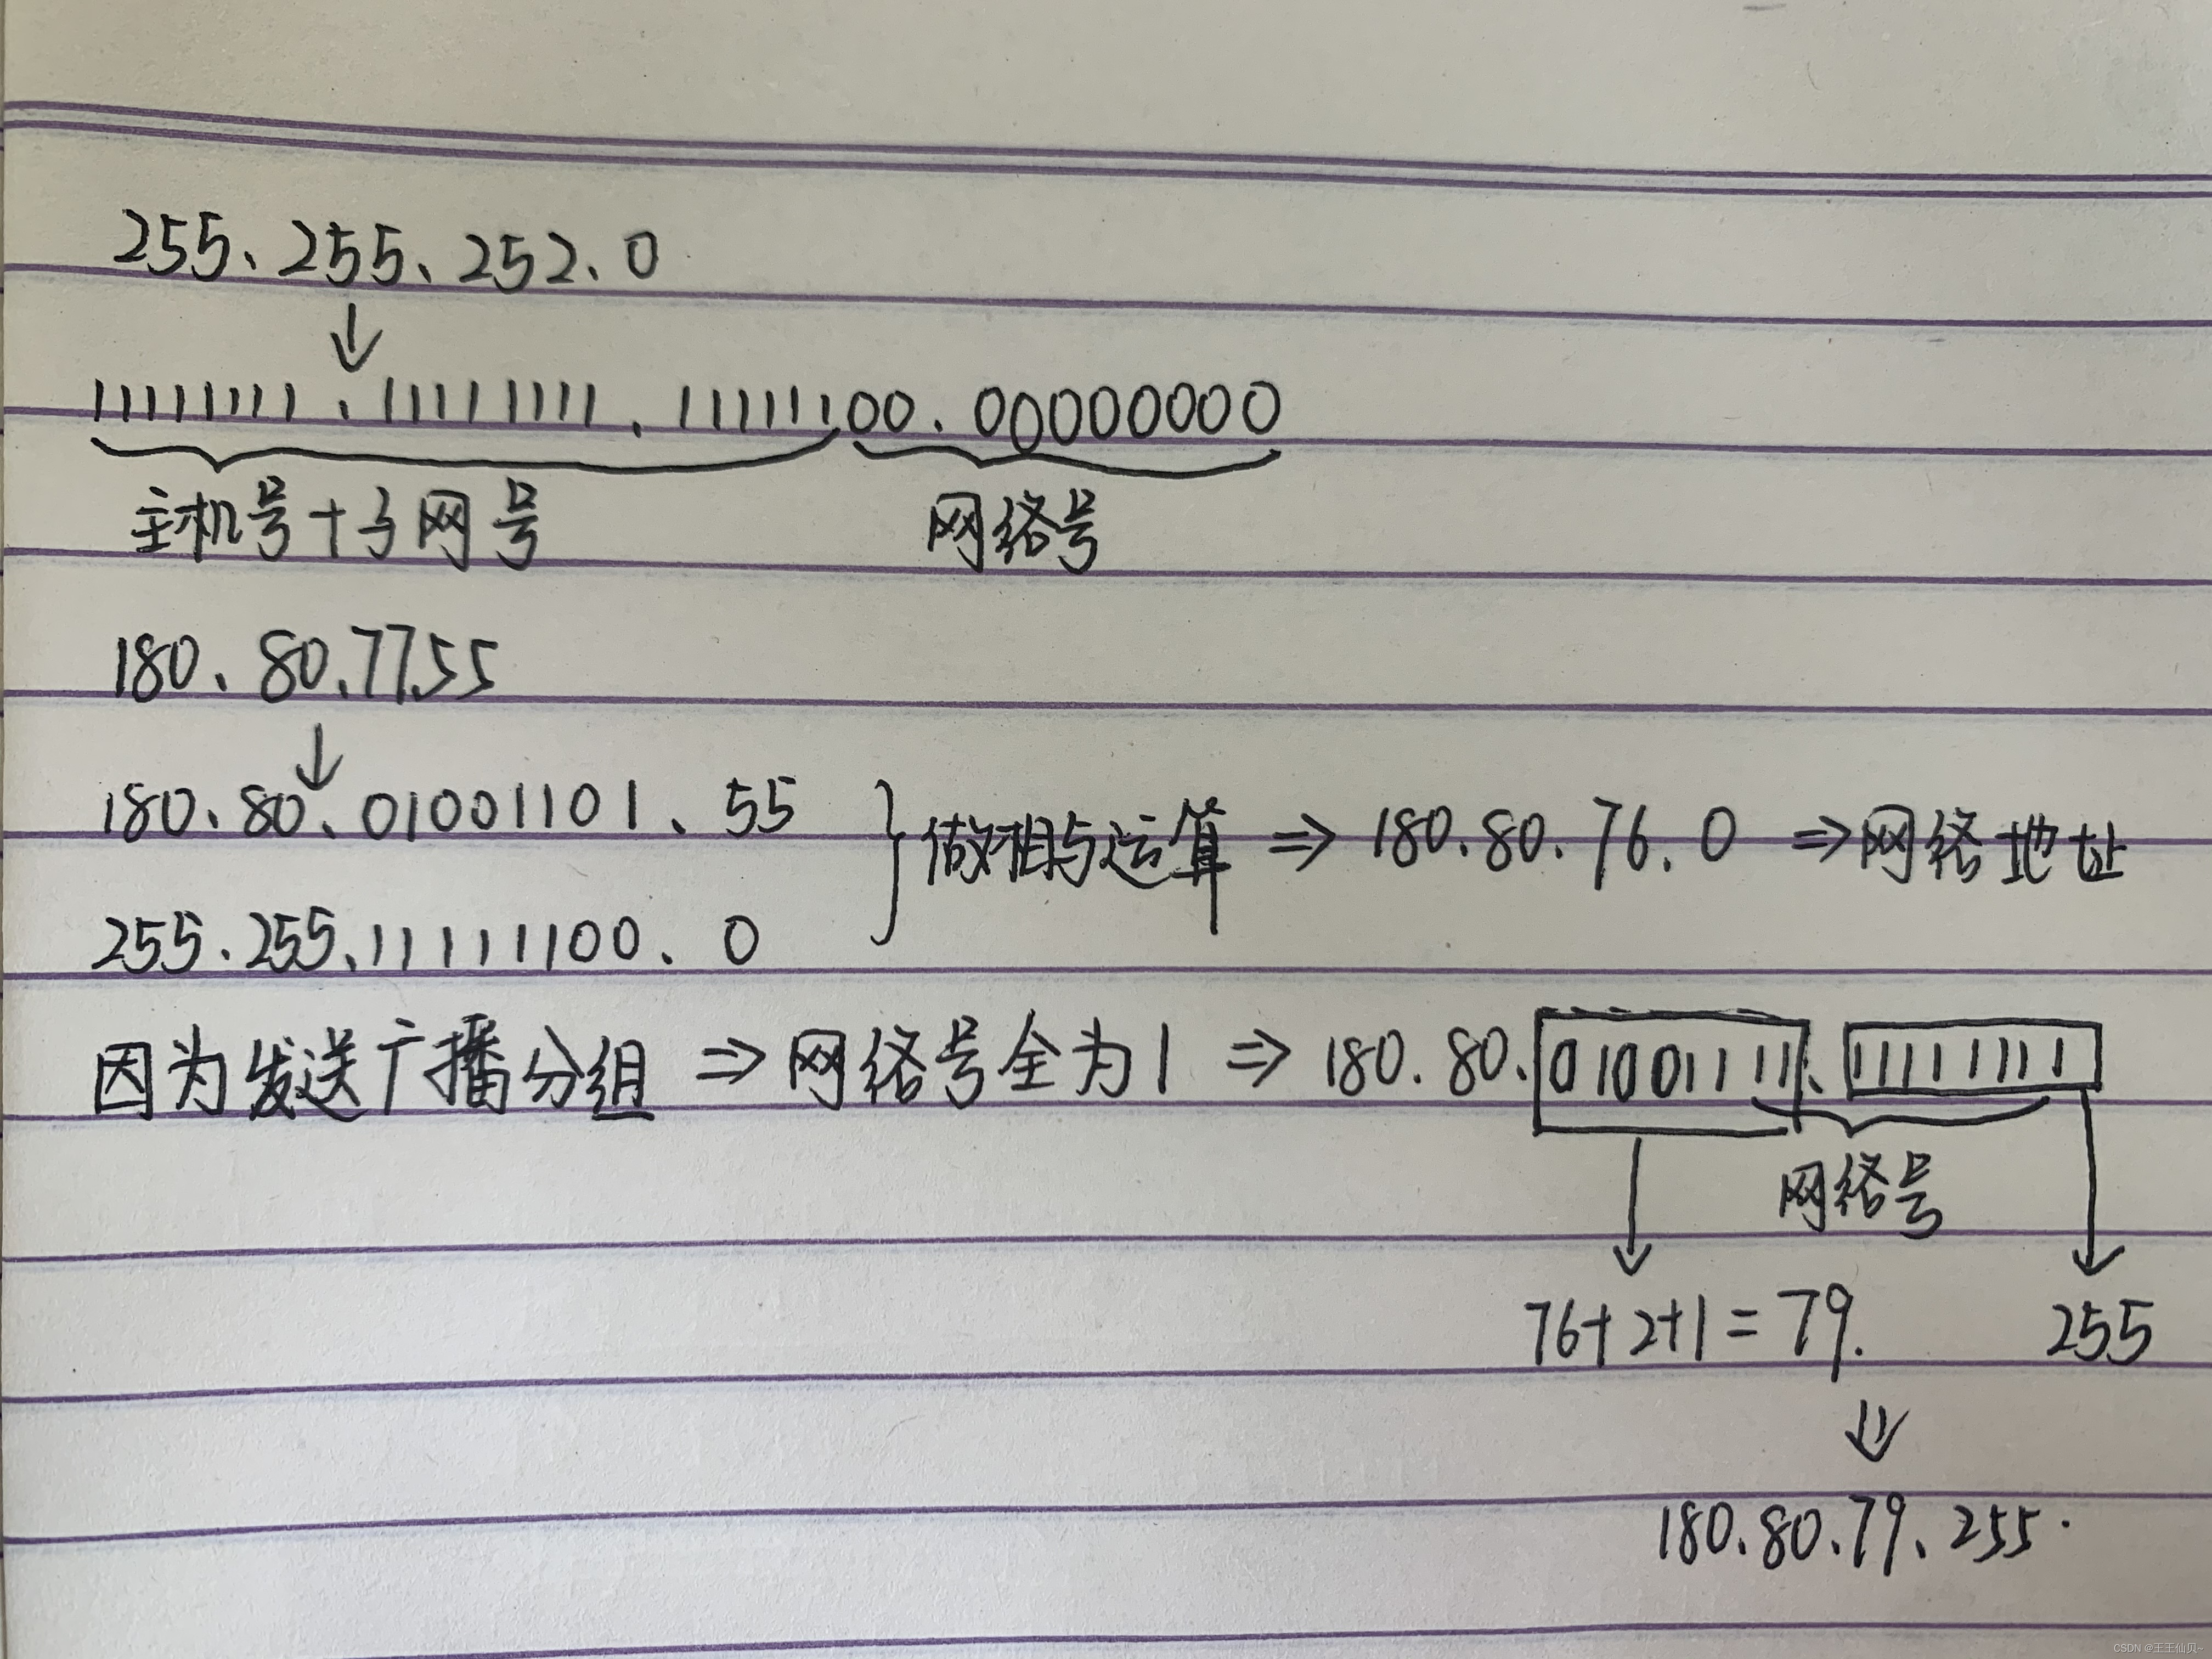 255、255、252、0
↓
11111111.11111111.11111100.00000000
主机号+子网号 网络号
180、80.77.55
↓
180.80.01001101.55
255.255.11111100.0
}做相与运算 ⇒ 180.80.76.0 ⇒网络地址
因为发送广播分组 ⇒ 网络号全为1 ⇒ 180.80.01001111.11111111
网络号
76+2+1=79. 255
⇓
180.80.79.255.
CSDN @王王仙贝~